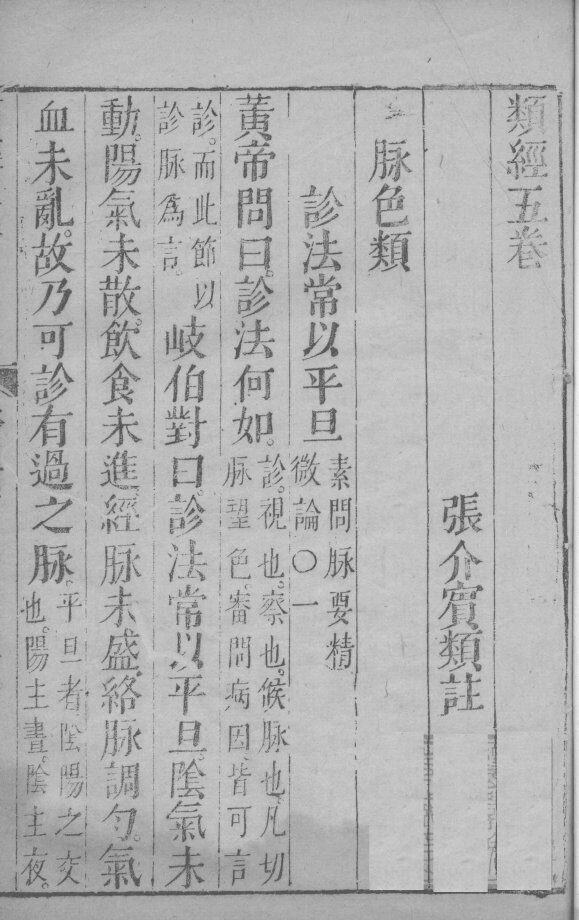 類經五卷
張介賓類註
脉色類
診法常以平旦素問脉要精微論〇一
黃帝問曰。診法何如。診。視也。察也。候脉也。凡切脉望色。審問病因。皆可言
診。而此節以診脉爲言。岐伯對曰。診法常以平旦。陰氣未
動。陽氣未散。飲食未進。經脉未盛。絡脉調勻。氣
血未亂。故乃可診有過之脉。平旦者。陰陽之交也。陽主晝。陰主夜。